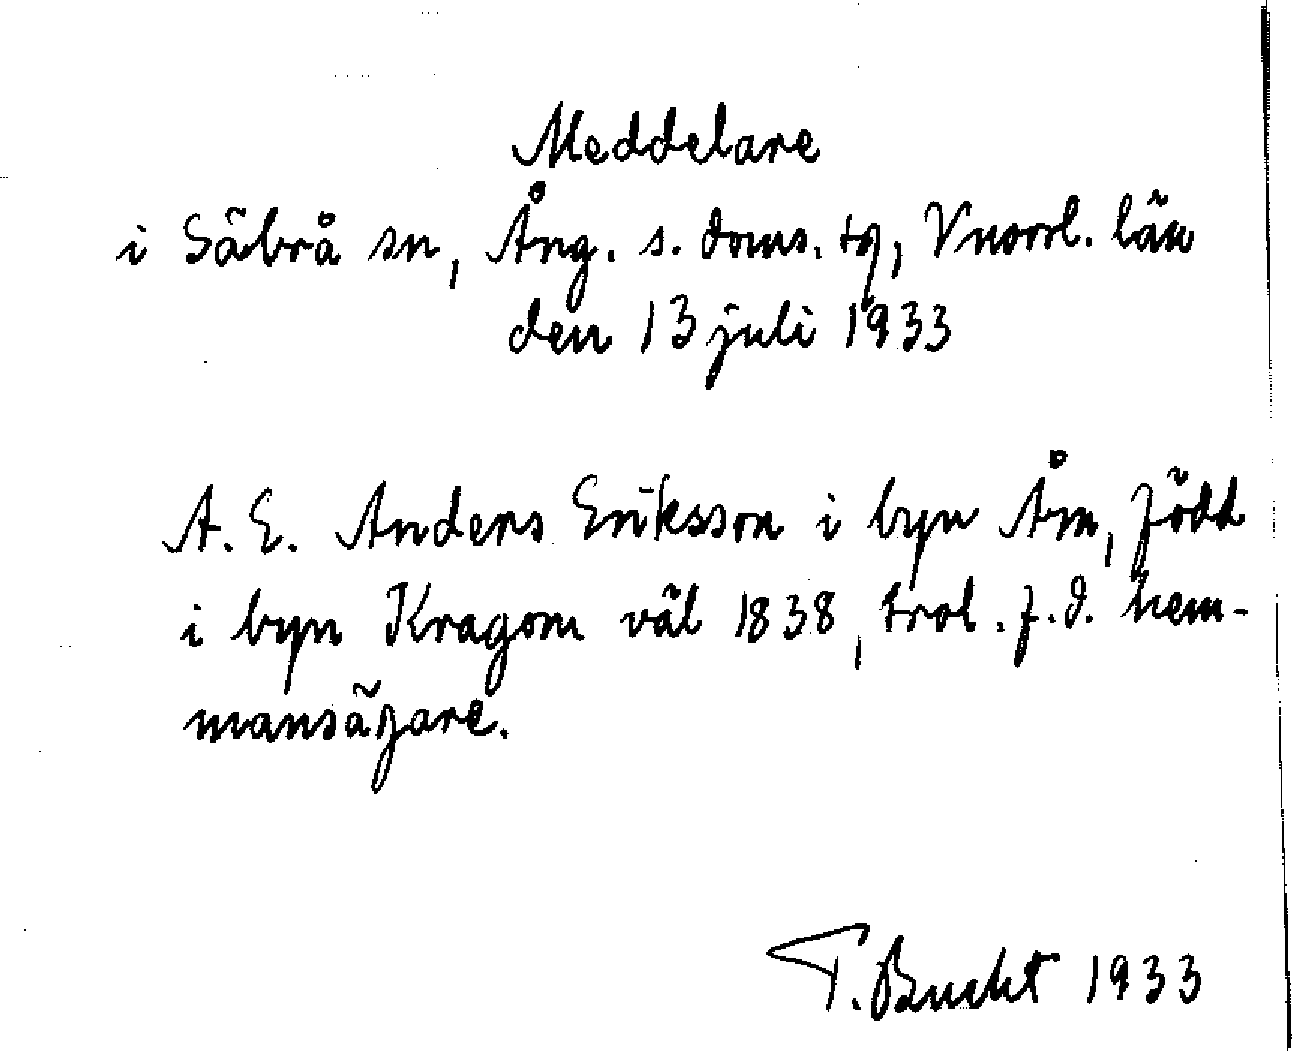 Meddelare
i Säbrå sn, Ång. s. doms. tg, Vnorrl. län
den 13 juli 1933
A. E. Anders Eriksson i byn Åm, född
i byn Kragom väl 1838, trol. f.d. hem-
mansägare.
T. Bucht 1933